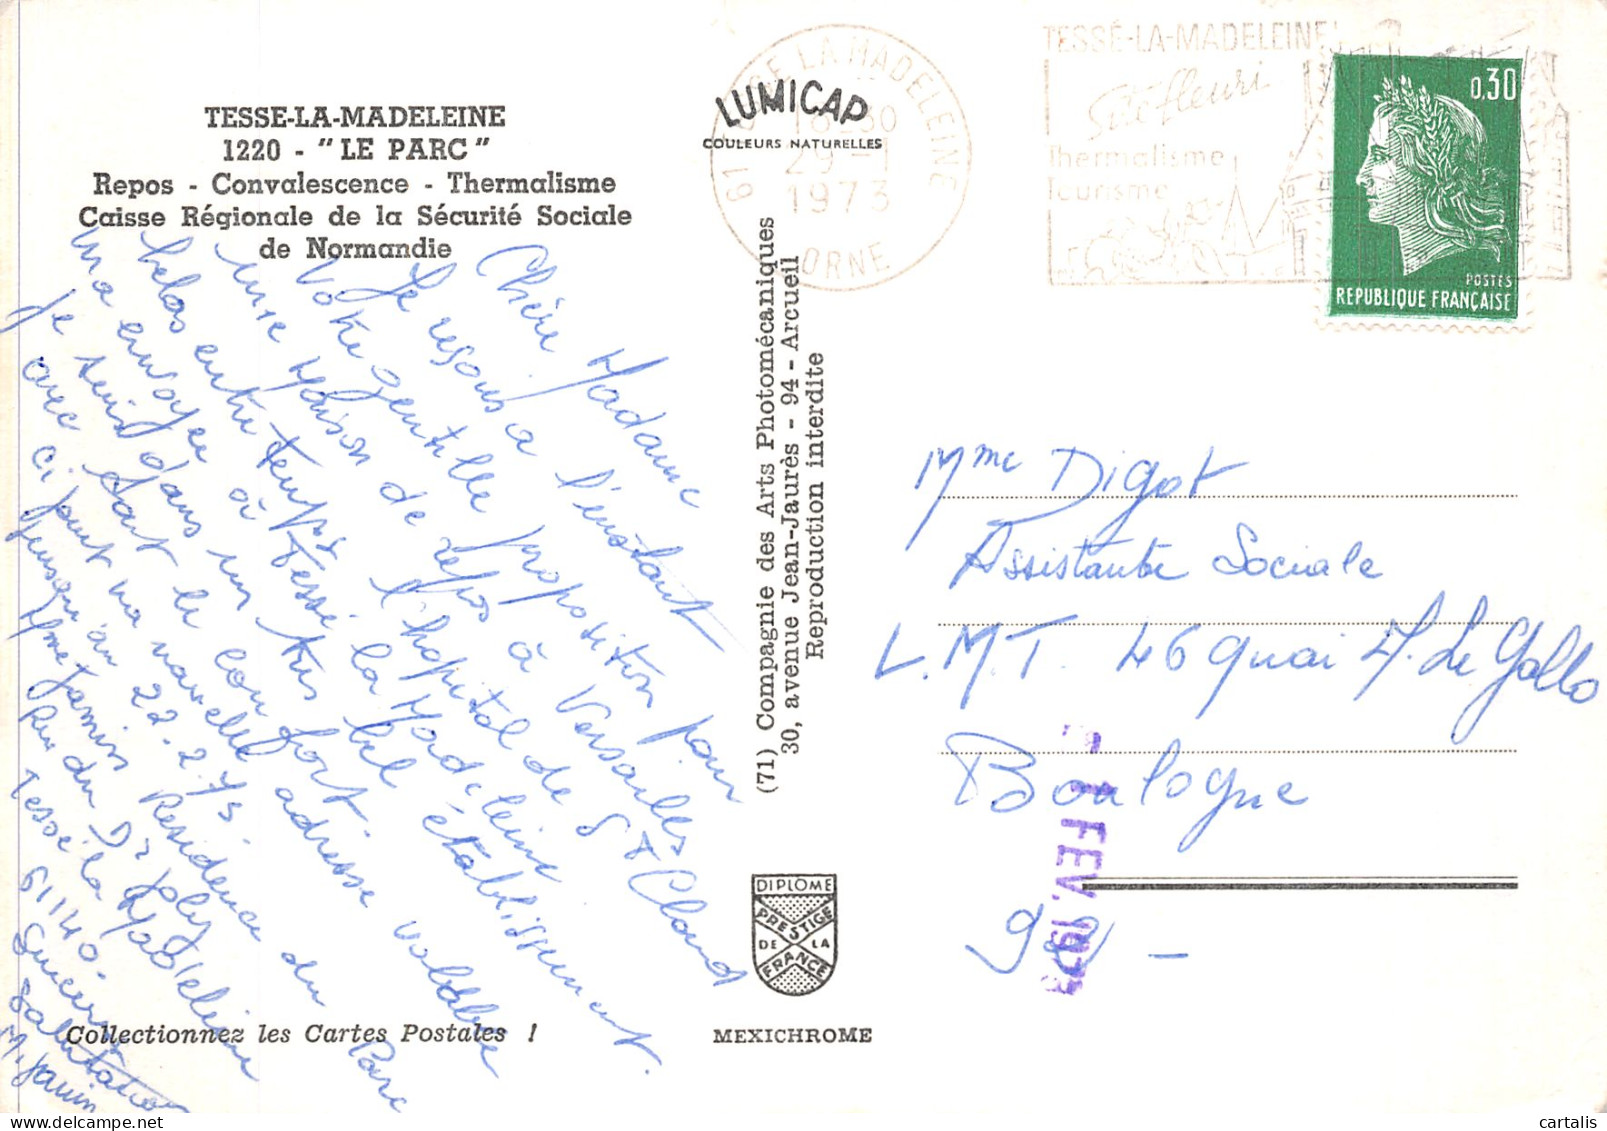 TESSE-LA-MADELEINE
1220 - "LE PARC"
Repos - Convalescence - Thermalisme
Caisse Régionale de la Sécurité Sociale
de Normandie
LUMICAP
COULEURS NATURELLES
LA MADELEINE
16-30
29-1
1973
61
ORNE
TESSÉ-LA-MADELEINE
Site fleuri
Thermalisme
Tourisme
0,30
POSTES
REPUBLIQUE FRANÇAISE
Chère Madame
Je reçois à l'instant
Votre gentille proposition pour
une Maison de repos à Versailles
helas entre temps l'hopital de St Cloud
m'a envoyée à Tessé la Madeleine
Je suis dans un très bel établissement
avec tout le confort.
ci joint ma nouvelle adresse valable
jusqu'au 22.2.73.
Mme Jamin Residence du Parc
Rue du Dr Joly
Tessé la Madeleine
61140.
Sincères
Salutations
M. Jamin
(71) Compagnie des Arts Photomécaniques
30, avenue Jean-Jaurès - 94 - Arcueil
Reproduction interdite
Mme Digot
Assistante Sociale
L.M.T. 46 quai A. Le Gallo
Boulogne
92 -
- 1 FEV. 1973
DIPLÔME
PRESTIGE
DE LA
FRANCE
Collectionnez les Cartes Postales !
MEXICHROME
cartalis